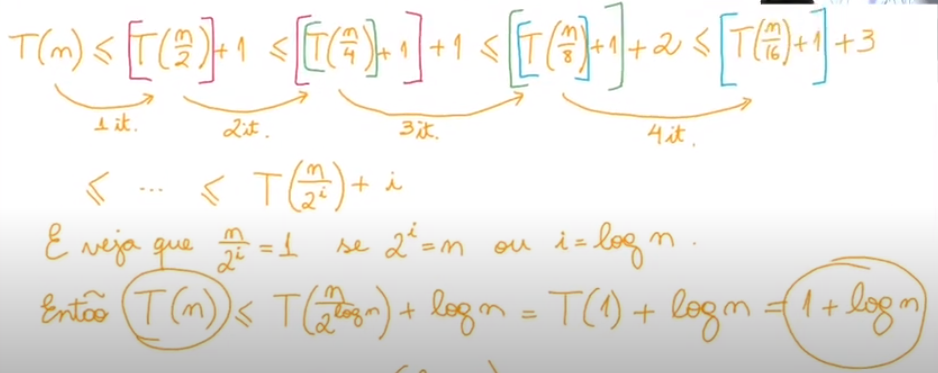 T(n) ≤ [T(n/2)]+1 ≤ [[T(n/4)]+1]+1 ≤ [[T(n/8)]+1]+2 ≤ [T(n/16)+1]+3
1 it. 2it. 3it. 4it.
≤ ... ≤ T(n/2^i)+ i
E veja que n/2^i = 1 se 2^i = n ou i = log n.
Então T(n) ≤ T(n/2^log n) + log n = T(1) + log n = 1 + log n